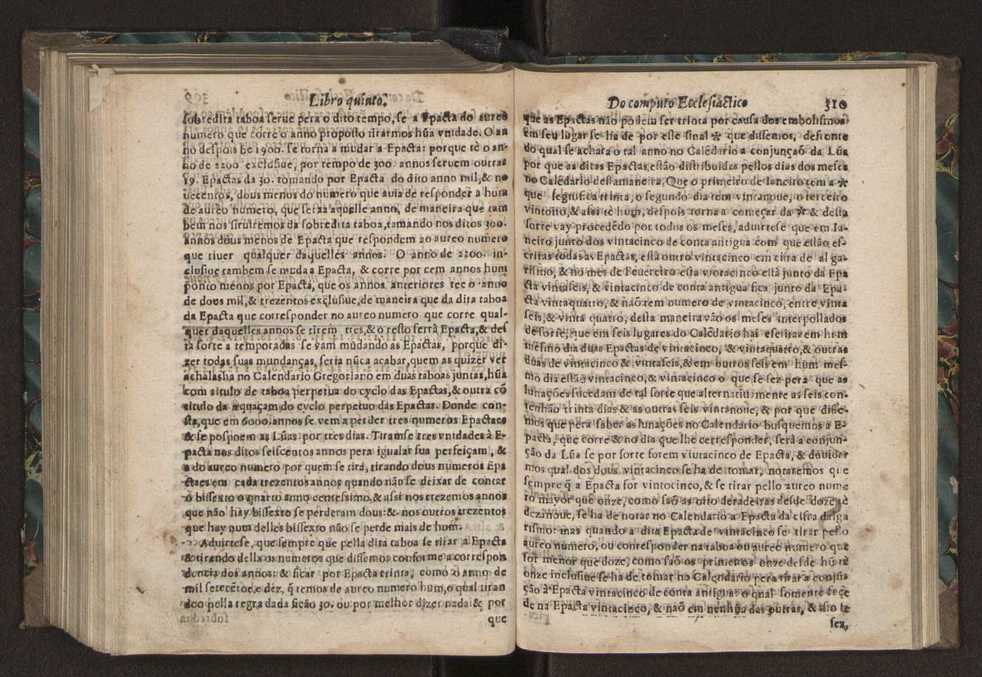 Libro quinto.
sobredita taboa serue pera o dito tempo, se a Epacta do aureo
numero que corre o anno proposto tirarmos hũa vnidade. O an
no despois de 1900. se torna a mudar a Epacta: porque tè o an-
no de 2200 exclusiue, por tempo de 300. annos seruem outras
19. Epactas da 30. tomando por Epacta do dito anno mil, & no
uecentos, dous menos do numero que auia de responder a hum
de aureo numero, que sera aquelle anno, de maneira que tam
bem nos siruiremos da sobredita taboa, tomando nos ditos 300.
annos dous menos de Epacta que respondem ao aureo numero
que tiuer qualquer daquelles annos. O anno de 2200. in-
clusiue tambem se muda a Epacta, & corre por cem annos hum
ponto menos por Epacta, que os annos anteriores tee o anno
de dous mil, & trezentos exclusiue, de maneira que da dita taboa
da Epacta que corresponder no aureo numero que corre qual-
quer daquelles annos se tirem tres, & o resto serra Epacta, & des
ta sorte a temporadas se vam mudando as Epactas, porque di-
zer todas suas mundanças, seria nũca acabar, quem as quizer ver
achalasha no Calendario Gregoriano em duas taboas juntas, hũa
com titulo de taboa perpetua do cyclo das Epactas, & outra cõ
titulo da equaçam do cyclo perpetuo das Epactas. Donde con-
sta, que em 6000. annos se vem a perder tres numeros Epactaes
& se pospoem as Lũas por tres dias. Tiramse tres vnidades à E-
pacta nos ditos seiscentos annos pera igualar sua perfeiçam, &
a do aureo numero por quem se tira, tirando dous numeros Epa
ctaes em cada trezentos annos quando não se deixar de contar
o bissexto o quarto anno centessimo, & assi nos trezentos annos
que não hay bissexto se perderam dous: & nos outros trezentos
que hay num delles bissexto não se perde mais de hum.
Aduirtese, que sempre que pella dita taboa se tirar a Epacta
& tirando della os numeros que dissemos conforme a correspon
dencia dos annos: & ficar por Epacta trinta, como o anno de
mil setecẽtos, e dez, q̃ temos de aureo numero hum, o qual tiran
do o pella regra dada ficão 30. ou por melhor dizer nada: & por
que
Do computo Ecclesiastico 310
que as Epactas não podem ser trinta por causa dos embolismos
em seu lugar se ha de por esse sinal * que dissemos, defronte
do qual se achara o tal anno no Calẽdario a conjunçaõ da Lũa
por que as ditas Epactas estão distribuidas pellos dias dos meses
no Calẽdario desta maneira, Que o primeiro de Ianeiro tem a *
que segnifica trinta, o segundo dia tem vintanoue, o terceiro
vintoito, & assi tè hum, despois torna a começar da * & desta
sorte vay procedẽdo por todos os meses, aduirtese que em Ia-
neiro junto dos vintacinco de conta antigua com que estão es-
critas todas as Epactas, està outro vintacinco em cifra de al ga-
rismo, & no mes de Feuereiro esta vintacinco està junto da Epa
cta vintaseis, & vintacinco de conta antigua fica junto da Epa-
cta vintaquatro, & naõ tem numero de vintacinco, entre vinta
seis, & vinta quatro, desta maneira vão os meses interpollados
de sorte, que em seis lugares do Calẽdario hai escritas em hum
mesmo dia duas Epactas de vintacinco, & vintaquatro, & outras
duas de vintacinco & vintaseis, & em outros seis em hum mes-
mo dia estão vintacinco, & vintacinco o que se fez pera que as
lunações sucedam de tal sorte que alternatiuamente as seis con-
tenhão trinta dias & as outras seis vintanoue, & por que disse-
mos que pera saber as lunações no Calendario busquemos a E-
pacta, que corre & no dia que lhe corresponder, serà a conjun-
ção da Lũa se por sorte forem vintacinco de Epacta, & duuidar
mos qual dos dous vintacinco se ha de tomar, notaremos que
sempre q̃ a Epacta for vintocinco, & se tirar pello aureo nume
ro mayor que onze, como saõ os oito derradeiras desde doze tè
dezanoue, se ha de notar no Calendario a Epacta da cifra dalga
rismo: mas quando a dita Epacta de vintacinco se tirar pello
aureo numero, ou corresponder na taboa ou aureo numero que
for menor que doze, como saõ os primeiros onze desde hũ tè
onze inclusiue se ha de tomar no Calendario pera tirar a conjũ
ção à Epacta vintacinco de conta antigua: o qual somente socè
de na Epacta vintacinco, & naõ em nenhũa das outras, & isto se
fez,